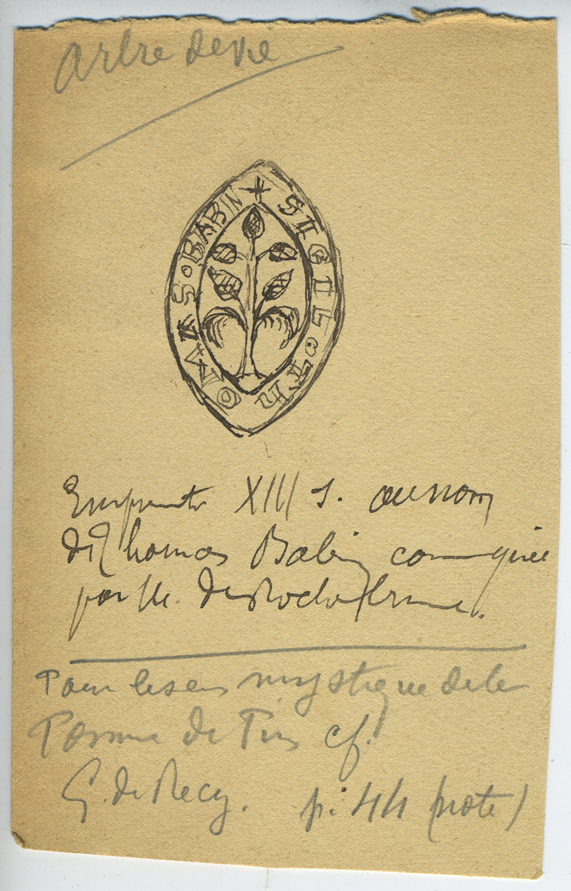 Arbre de vie
✶ SIGILL • TH
OMAS • BABIN
Empreinte XIII s. au nom
de Thomas Babin communiquée
par M. de Rochebrune.
Pour le sens mystique de la
Pomme de Pin cf.
G. de Recy. p. 44 (note)